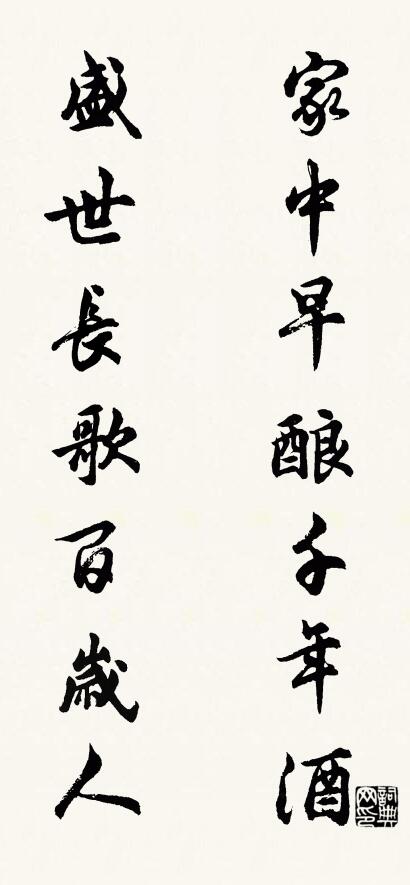 家中早酿千年酒
盛世長歌百歲人
詞典网